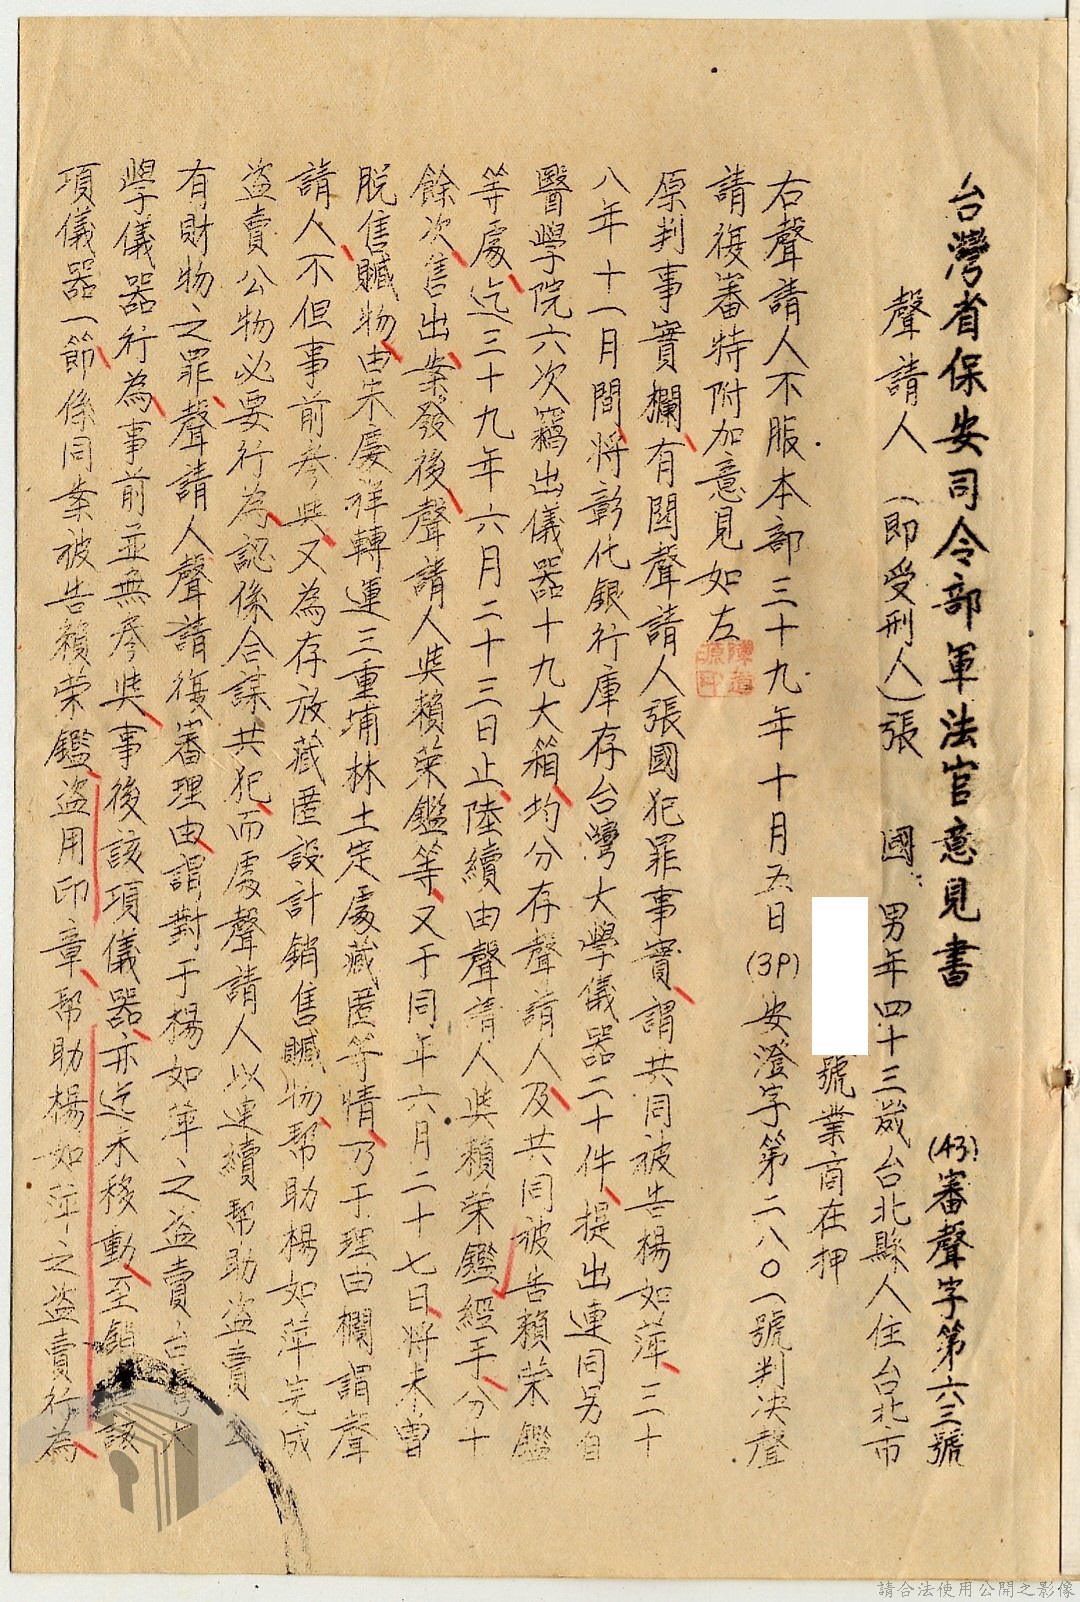 台灣省保安司令部軍法官意見書
(43)審聲字第六三號
聲請人（即受刑人）張 國 男年四十三歲台北縣人住台北市
號業商在押
右聲請人不服本部三十九年十月五日(39)安澄字第二八〇一號判決聲
請復審特附加意見如左
原判事實欄有關聲請人張國犯罪事實謂共同被告楊如萍三十
八年十一月間將彰化銀行庫存台灣大學儀器二十件提出連同另自
醫學院六次竊出儀器十九大箱均分存聲請人及共同被告賴榮鑑
等處迄三十九年六月二十三日止陸續由聲請人與賴榮鑑經手分十
餘次售出案發後聲請人與賴榮鑑等又于同年六月二十七日將未曾
脫售贓物由朱慶祥轉運三重埔林土定處藏匿等情乃于理由欄謂聲
請人不但事前參與又為存放藏匿設計銷售贓物幫助楊如萍完成
盜賣公物必要行為認係合謀共犯而處聲請人以連續幫助盜賣公
有財物之罪聲請人聲請復審理由謂對于楊如萍之盜賣台灣大
學儀器行為事前並無參與事後該項儀器亦迄未移動至銷該
項儀器一節係同案被告賴榮鑑盜用印章幫助楊如萍之盜賣行為
請合法使用公開之影像